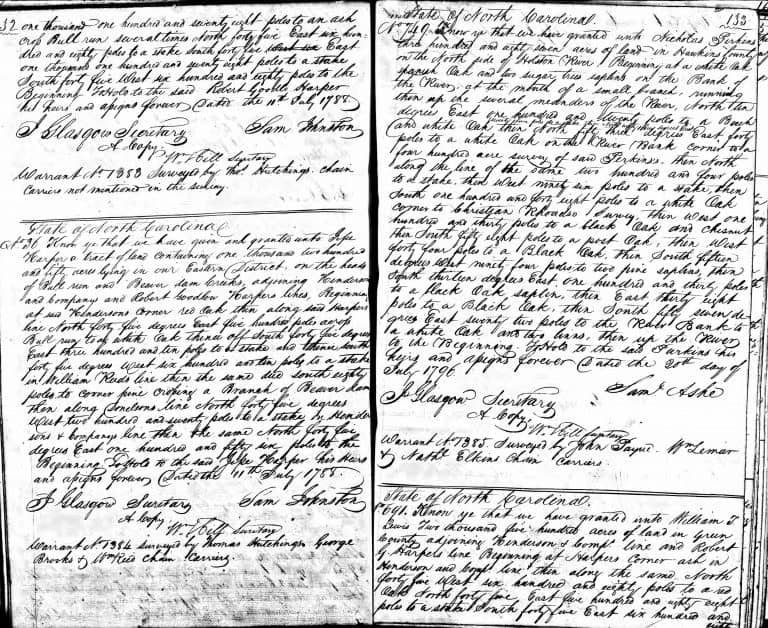 132
one thousand one hundred and seventy eight poles to an ash
crop Bull run several times North forty five East six hun-
dred and eighty poles to a stake South forty five East
one thousand one hundred and seventy eight poles to a stake
South forty five West six hundred and eighty poles to the
Beginning To Hold to the said Robert Goodloe Harper
his heirs and assigns forever Dated the 11th July 1788.
J Glasgow Secretary Sam Johnston
A Copy
W. Hill Secretary
Warrant No 1383 Surveyed by Thos Hutchings. Chain
Carriers not mentioned in the survey.
State of North Carolina
No 36 Know ye that we have given and granted unto Jesse
Harper a tract of land containing one thousand two hundred
and fifty acres lying in our Eastern District, on the heads
of Bull run and Beaver dam Creeks, adjoining Henderson
and Company and Robert Goodloe Harpers lines, Beginning
at said Hendersons corner red Oak then along said Harpers
line North forty five degrees East five hundred poles across
Bull run to a white Oak thence off South forty five degrees
East three hundred and ten poles to a stake thence South
forty five degrees West six hundred and ten poles to a stake
in William Reids line then the same South eighty
poles to corner pine crossing a Branch of Beaver dam
then along line North forty five degrees
West two hundred and seventy poles to a stake by Hender
sons & Companys line then the same North forty five
degrees East one hundred and fifty six poles to the
Beginning To Hold to the said Jesse Harper his Heirs
and assigns forever Dated the 11th July 1788.
J Glasgow Secretary Sam Johnston
A Copy
W. Hill Secretary
Warrant No 1384 surveyed by Thomas Hutchings George
Brooks & Wm Reid Chain Carriers.
133
State of North Carolina
No 749. Know ye that we have granted unto Nicholas Perkins
three hundred and eighty seven acres of land in Hawkins County
on the North side of Holston River. Beginning at a white Oak
Spanish Oak and two sugar tree saplins on the Bank of
the River, at the mouth of a small branch, running
then up the several meanders of the River, North ten
degrees East one hundred and seventy poles to a Beech
and white Oak then North fifty three degrees East forty
poles to a white Oak on the River Bank corner to a
four hundred acre survey of said Perkins, then North
along the line of the same two hundred and four poles
to a stake, then West ninety six poles to a stake, then
South one hundred and forty eight poles to a white Oak
corner to Christian Rhoades Survey, then West one
hundred and thirty poles to a black Oak and chesnut
then South fifty eight poles to a post Oak, then West
forty four poles to a Black Oak, then South fifteen
degrees West ninety four poles to two pine saplins, then
South thirteen degrees East one hundred and thirty poles
to a black Oak saplin, then East thirty eight
poles to a Black Oak, then South fifty seven de-
grees East seventy two poles to the River Bank to
a white Oak and two linns, then up the River
to the Beginning To Hold to the said Perkins his
heirs and assigns forever Dated the 20th day of
July 1796
J Glasgow Secretary Saml Ashe
A Copy.
W. Hill Secretary
Warrant No 1385. Surveyed by John Payne. Wm Limar
& Nathl Elkins Chain Carriers.
State of North Carolina.
Know ye that we have granted unto William T
Lewis Two thousand five hundred acres of land in Green
County adjoining Henderson & Comps line and Robert
G Harpers line Beginning at Harpers Corner ash in
Henderson and Comps line then along the same North
forty five West six hundred and eighty poles to a red
Oak North forty five East five hundred and eighty eight
poles to a stake South forty five East six hundred and